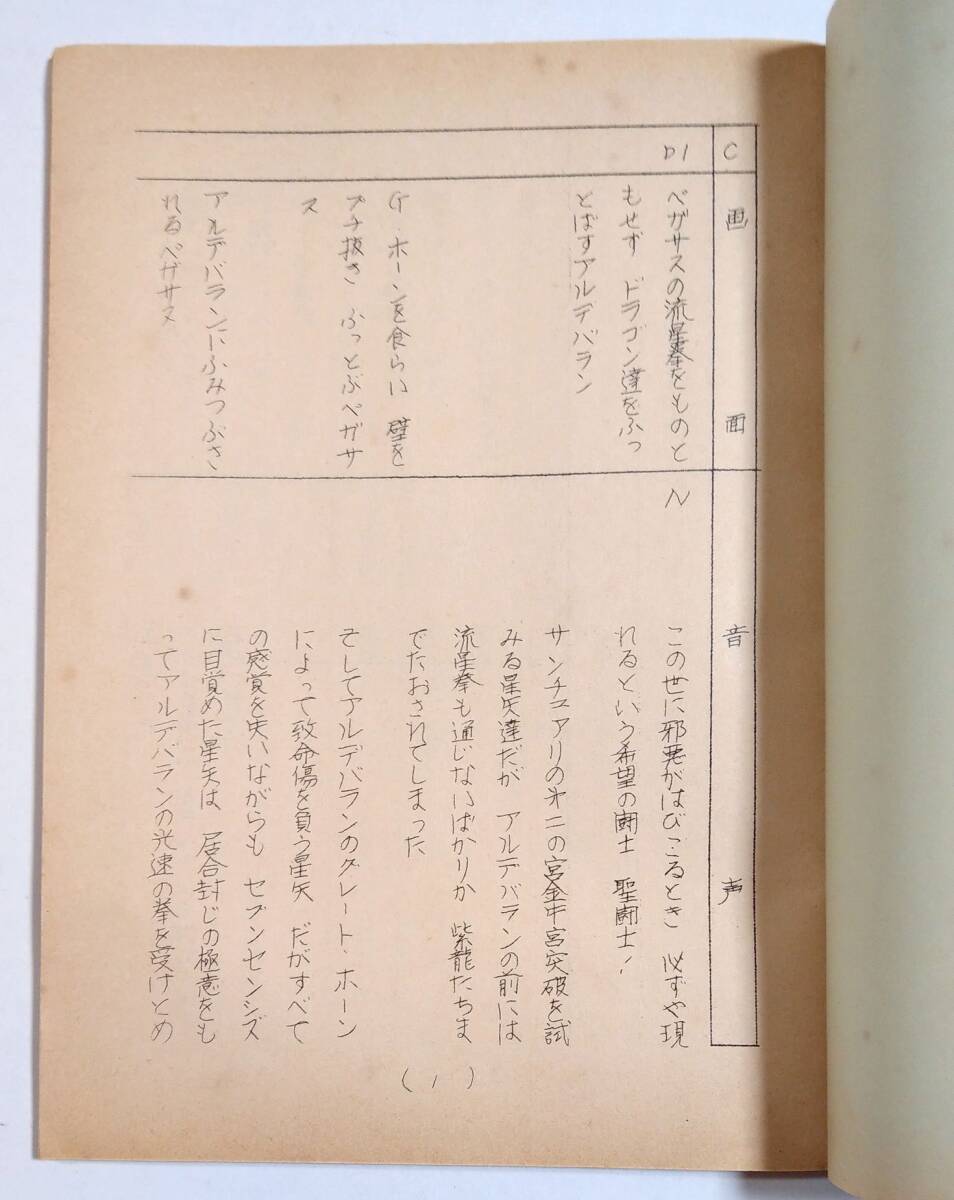 C
画面
音声
D1
ペガサスの流星拳をものと
もせず ドラゴン達をふっ
とばすアルデバラン
G・ホーンを食らい 壁を
ブチ抜き ふっとぶペガサ
ス
アルデバランにふみつぶさ
れるペガサス
N
この世に邪悪がはびこるとき 必ずや現
れるという希望の闘士 聖闘士!
サンチュアリの㐧二の宮金牛宮突破を試
みる星矢達だが アルデバランの前には
流星拳も通じないばかりか 紫龍たちま
でたおされてしまった
そしてアルデバランのグレート・ホーン
によって致命傷を負う星矢 だがすべて
の感覚を失いながらも セブンセンシズ
に目覚めた星矢は 居合封じの極意をも
ってアルデバランの光速の拳を受けとめ
(1)